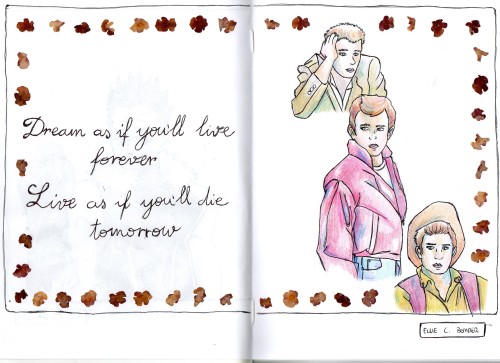 Dream as if you'll live
forever
Live as if you'll die
tomorrow
ELLIE C. BENDER